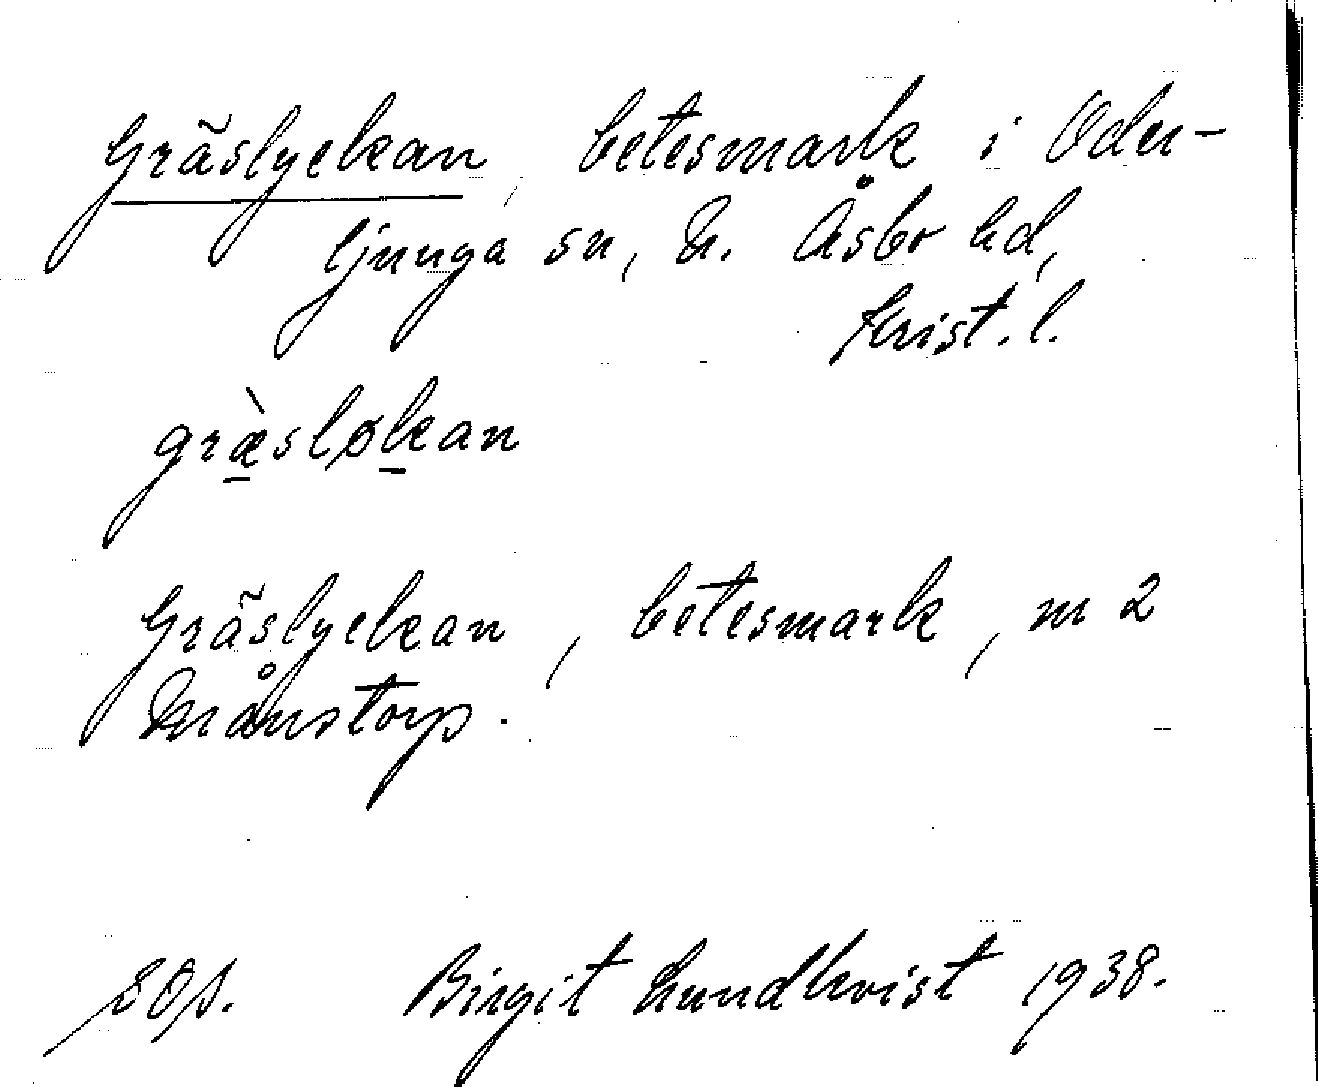 Gräslyckan, betesmark i Oder-
ljunga sn, N. Åsbo hd,
Krist. l.
græ̀sløkan
Gräslyckan, betesmark, m 2
Månstorp.
Birgit Lundkvist 1938.